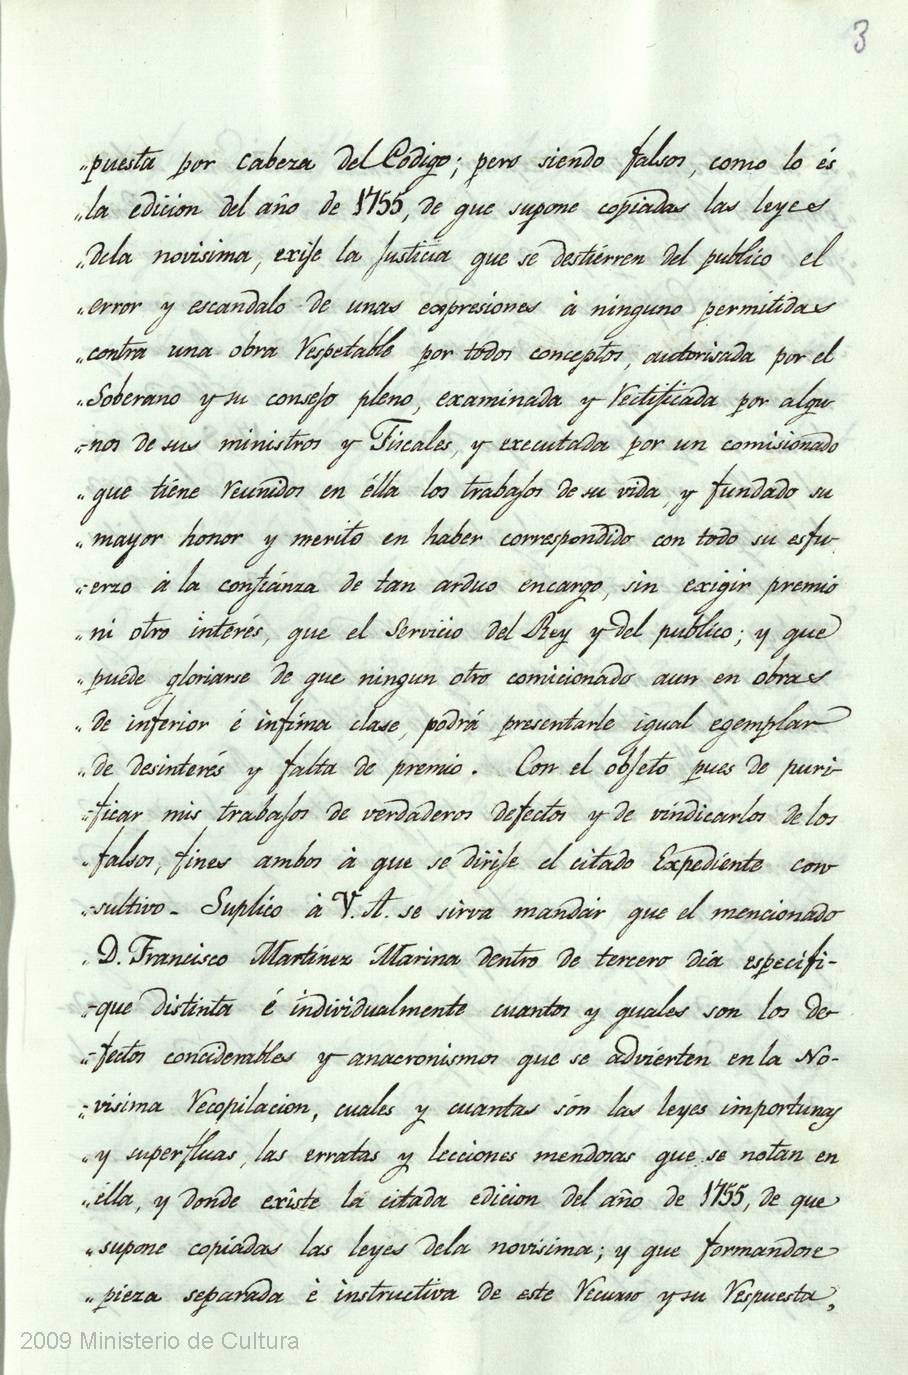 3
„puesta por cabeza del Codigo; pero siendo falsos, como lo és
„la edicion del año de 1755, de que supone copiadas las leyes
„dela novisima, exije la Justicia que se destierren del publico el
„error y escandalo de unas expresiones à ninguno permitidas
„contra una obra respetable por todos conceptos, autorisada por el
„Soberano y su consejo pleno, examinada y rectificada por algu-
„nos de sus ministros y Fiscales, y executada por un comisionado
„que tiéne reunidos en élla los trabajos de su vida, y fundado su
„mayor honor y merito en haber correspondido con todo su esfu-
„erzo á la confianza de tan arduo encargo, sin exigir premio
„ni otro interés, que el Servicio del Rey y del publico; y que
„puede gloriarse de que ningun otro comicionado aun en obras
„de inferior é infima clase, podrá presentarle igual egemplar
„de desinterés y falta de premio. Con el objeto pues de puri-
„ficar mis trabajos de verdaderos defectos y de vindicarlos de los
„falsos, fines ambos à que se dirije el citado Expediente con
„sultivo- Suplico à V. A. se sirva mandar que el mencionado
„D. Francisco Martinez Marina dentro de tercero dia especifi-
„que distinta é individualmente cuantos y quales son los de-
„fectos conciderables y anacronismos que se advierten en la No-
„visima recopilacion, cuales y cuantas són las leyes importunas
„y superfluas, las erratas y lecciones mendosas que se notan en
„élla, y donde existe la citada edicion del año de 1755, de que
„supone copiadas las leyes dela novisima; y que formandose
„pieza separada è instructiva de este recurso y su respuesta,
2009 Ministerio de Cultura